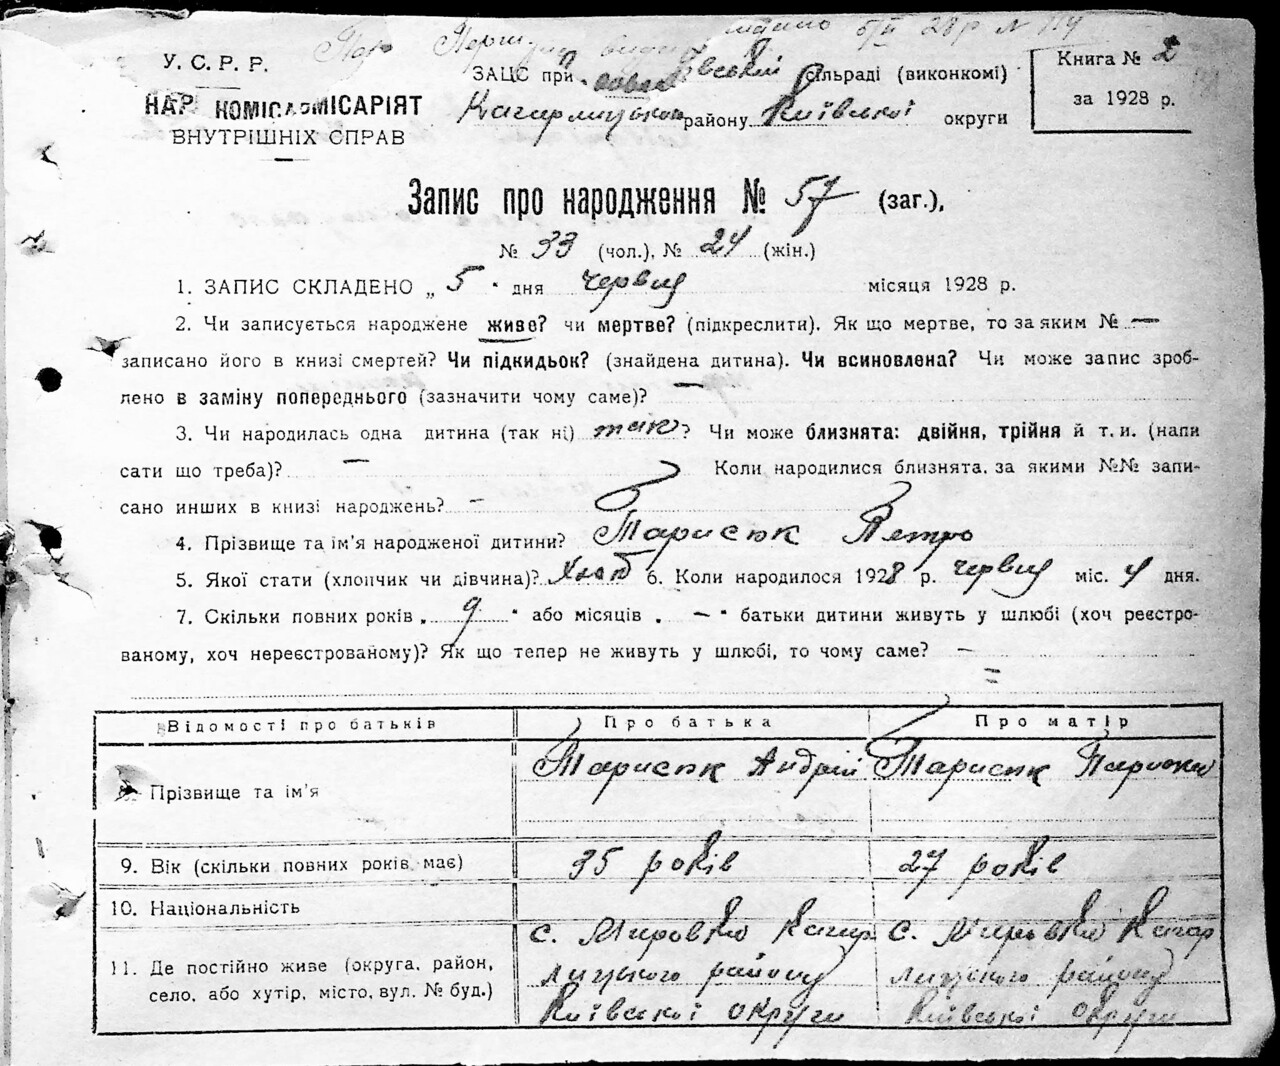 видано 5/VI 28 р N 114
У. С. Р. Р.
НАР КОМІСАОМІСАРІЯТ
ВНУТРІШНІХ СПРАВ
ЗАЦС при сільраді (виконкомі)
Кагарлицького району Київської округи
Книга № 2
за 1928 р.
Запис про народження № 57 (заг.),
№ 33 (чол.), № 24 (жін.)
1. ЗАПИС СКЛАДЕНО „ 5 " дня червня місяця 1928 р.
2. Чи записується народжене живе? чи мертве? (підкреслити). Як що мертве, то за яким № —
записано його в книзі смертей? Чи підкидьок? (знайдена дитина). Чи всиновлена? Чи може запис зроб-
лено в заміну попереднього (зазначити чому саме)? —
3. Чи народилась одна дитина (так ні) так? Чи може близнята: двійня, трійня й т. и. (напи
сати що треба)? — Коли народилися близнята, за якими №№ запи-
сано инших в книзі народжень? —
4. Прізвище та ім'я народженої дитини? Тарисюк Петро
5. Якої стати (хлопчик чи дівчина)? Хлоп 6. Коли народилося 1928 р. червня міс. 4 дня.
7. Скільки повних років „ 9 " або місяців „ — " батьки дитини живуть у шлюбі (хоч реєстро-
ваному, хоч нереєстрованому)? Як що тепер не живуть у шлюбі, то чому саме? —
Відомості про батьків Про батька Про матір
Прізвище та ім'я Тарисюк Андрій Тарисюк
9. Вік (скільки повних років має) 35 років 27 років
10. Національність
11. Де постійно живе (округа, район,
село, або хутір, місто, вул. № буд.)
с. Мировка Кагар
лицького району
Київської округи
с. Мировка Кагар
лицького району
Київської округи